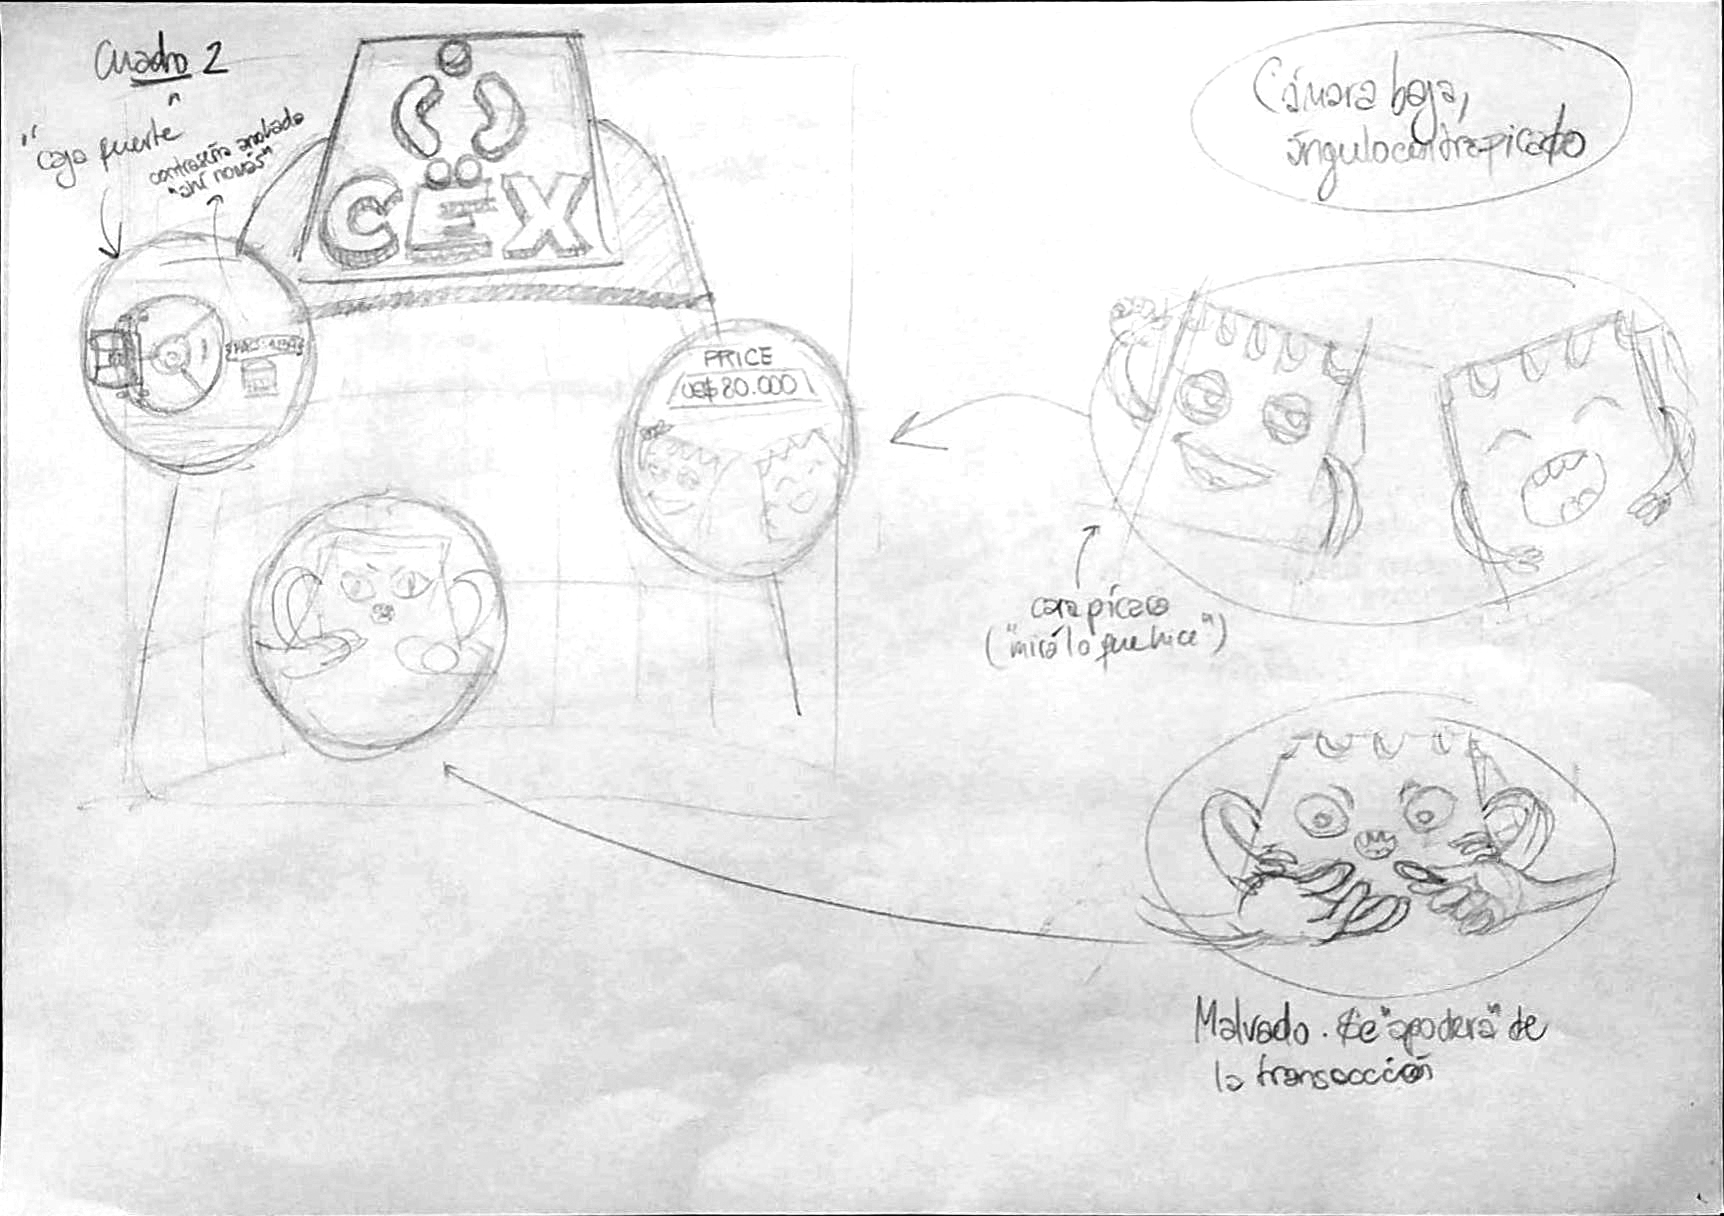 Cuadro 2
"caja fuerte"
contraseña anotada
"ahí nomás"
CËX
PRICE
US$ 80.000
Cámara baja,
ángulo contrapicado
cara pícara
("mirá lo que hice")
Malvado. Se "apodera" de
la transacción